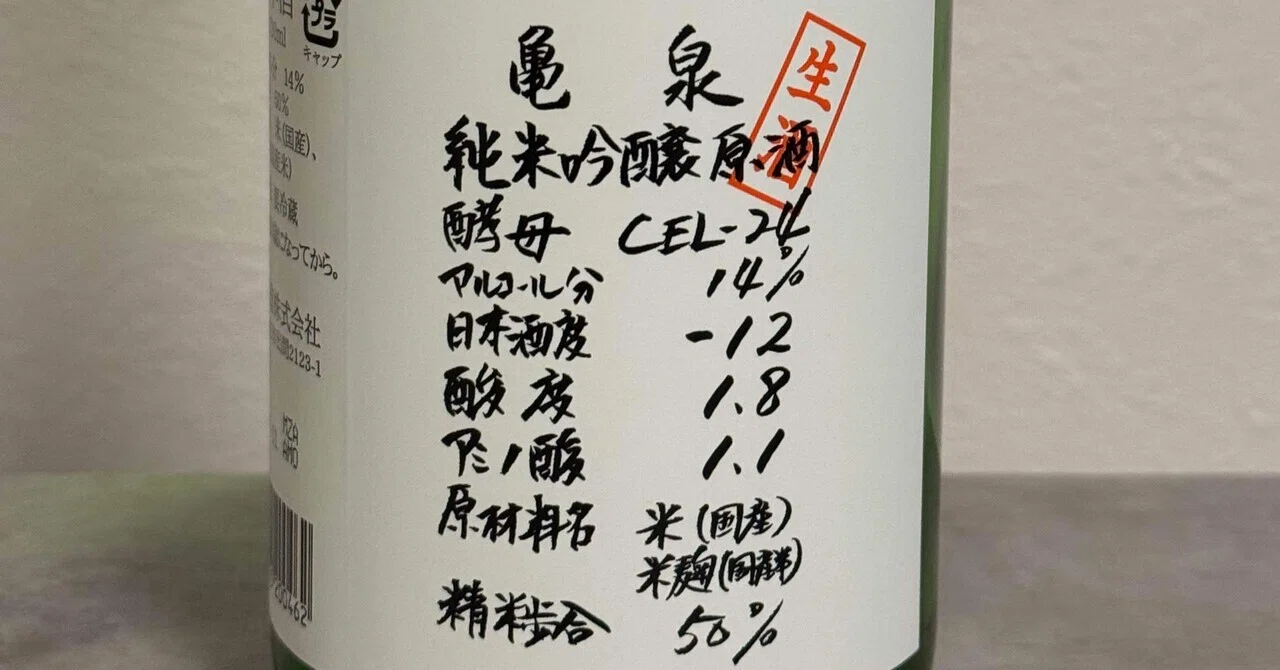 キャップ
プラ
14%
米(国産)、
冷蔵
になってから。
式会社
2123-1
MZA
AMD
200462
亀 泉
生酒
純米吟醸原酒
酵母 CEL-24
アルコール分 14%
日本酒度 -12
酸度 1.8
アミノ酸 1.1
原材料名 米(国産)
米麹(国産米)
精米歩合 50%